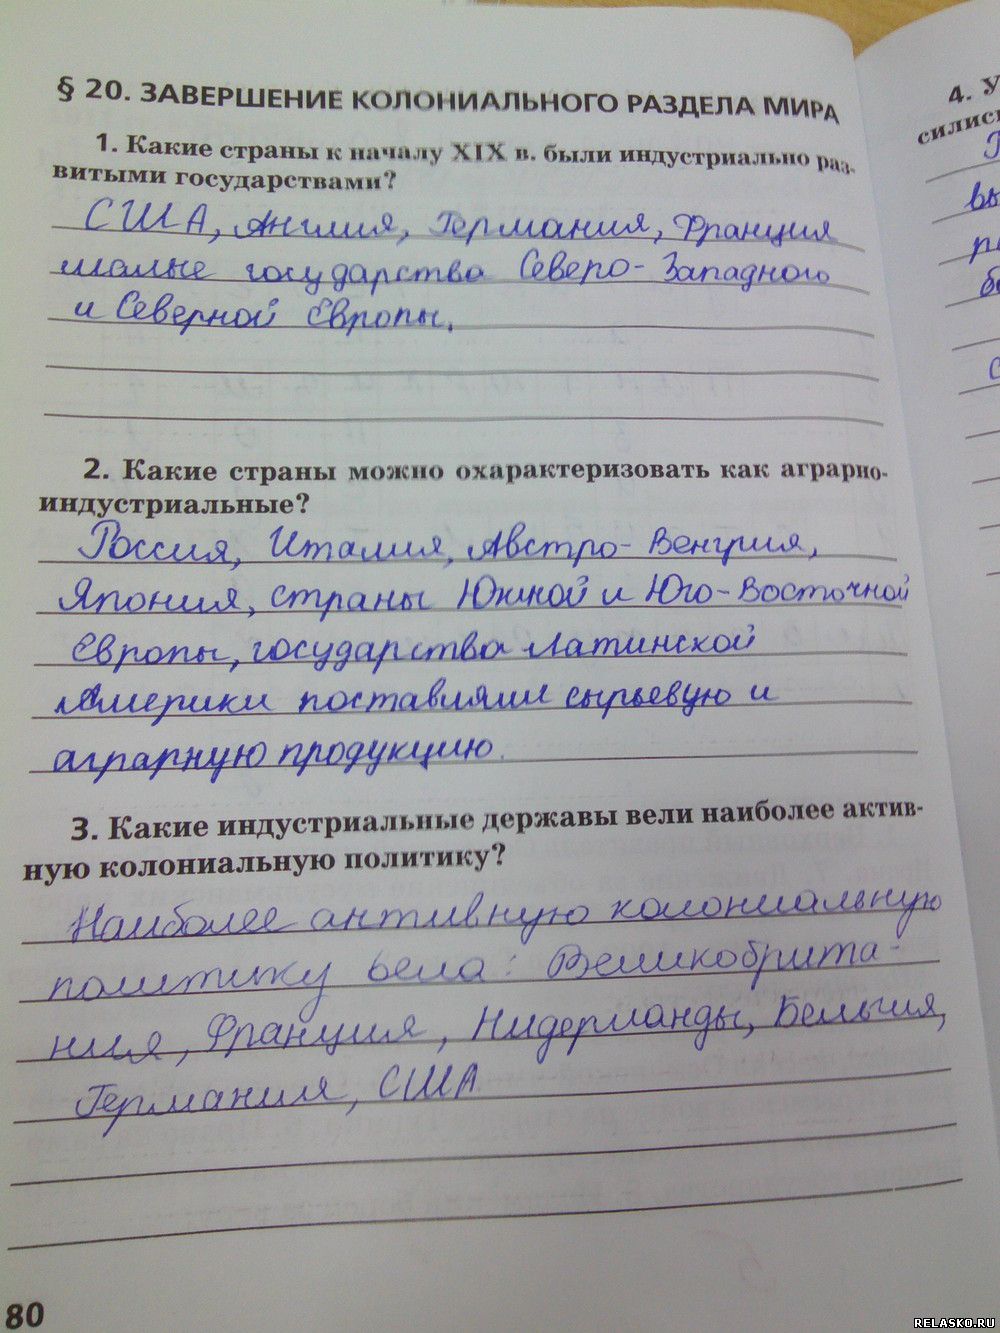 § 20. ЗАВЕРШЕНИЕ КОЛОНИАЛЬНОГО РАЗДЕЛА МИРА
1. Какие страны к началу XIX в. были индустриально раз-
витыми государствами?
США, Англия, Германия, Франция
малые государства Северо-Западного
и Северной Европы.
2. Какие страны можно охарактеризовать как аграрно-
индустриальные?
Россия, Италия, Австро-Венгрия,
Япония, страны Южной и Юго-Восточной
Европы, государства Латинской
Америки поставляли сырьевую и
аграрную продукцию.
3. Какие индустриальные державы вели наиболее актив-
ную колониальную политику?
Наиболее активную колониальную
политику вела: Великобрита-
ния, Франция, Нидерланды, Бельгия,
Германия, США
80
4. У
силис
RELASKO.RU